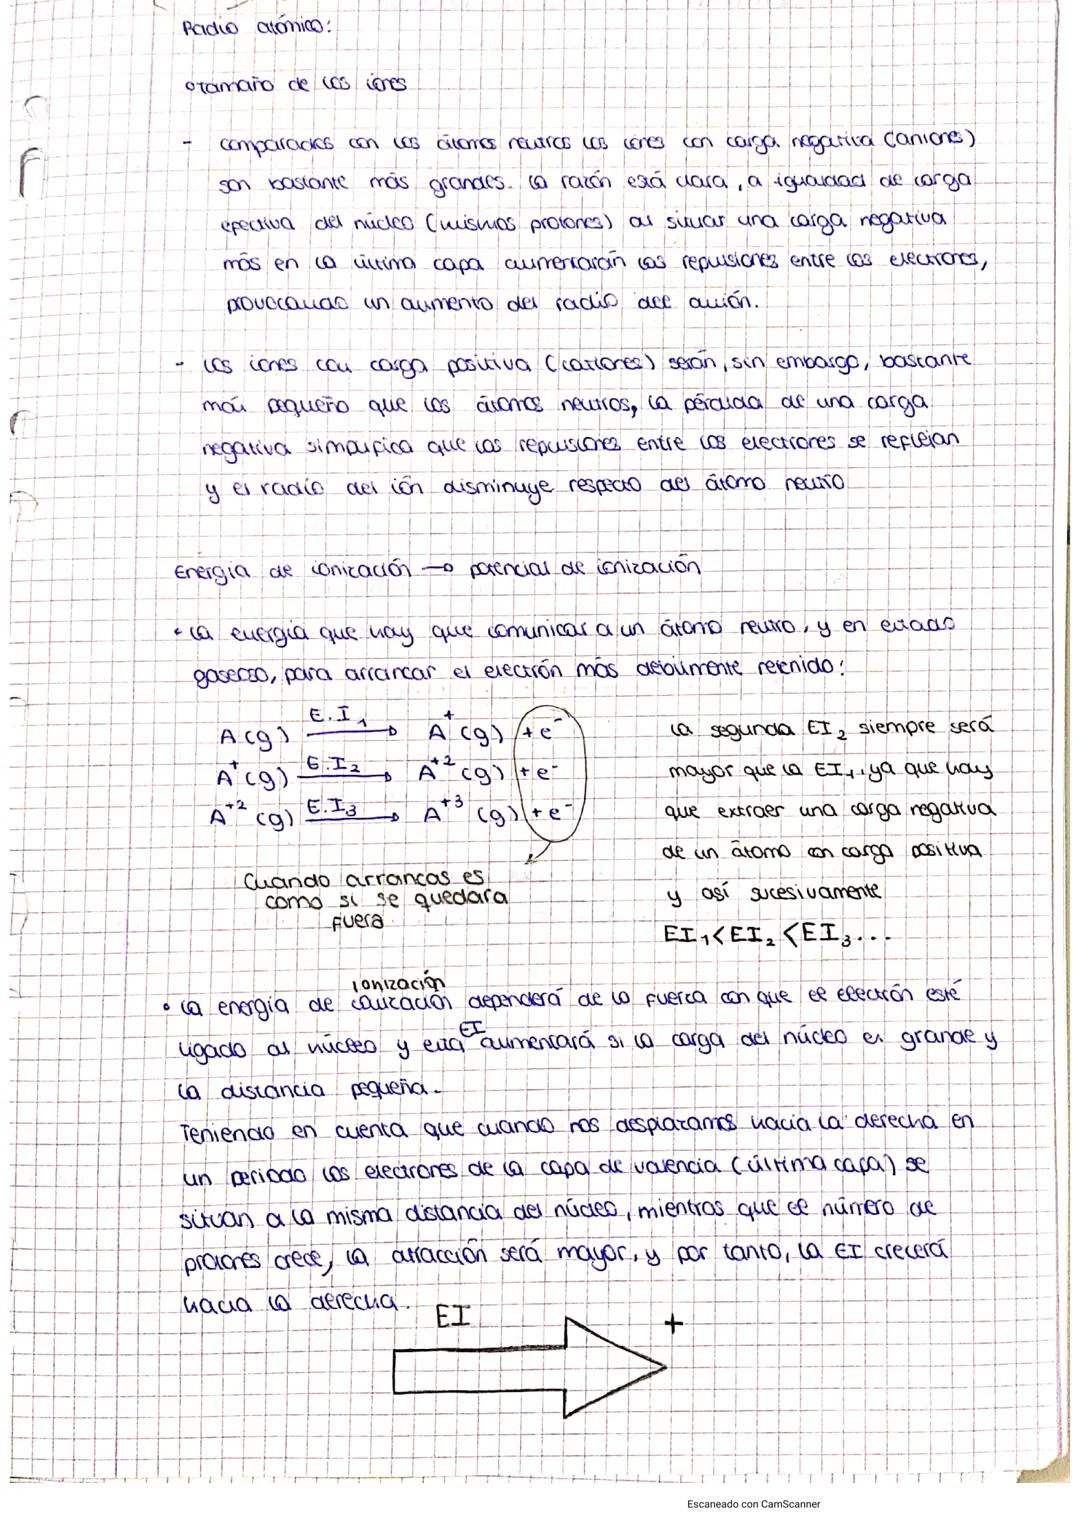 Radio atómico:
tamaño de los iones
- comparados con los átomos neutros los iones con carga negativa (aniones)
son bastante más grandes. la razón está clara, a igualdad de carga
efectiva del núcleo (mismos protones) al situar una carga negativa
más en la última capa aumentarán las repulsiones entre los electrones,
provocando un aumento del radio del anión.
- los iones con carga positiva (cationes) serán, sin embargo, bastante
más pequeño que los átomos neutros, la pérdida de una carga
negativa simplifica que las repulsiones entre los electrones se reflejan
y el radio del ión disminuye respecto del átomo neutro
Energía de ionización → potencial de ionización
• la energía que hay que comunicar a un átomo neutro, y en estado
gaseoso, para arrancar el electrón más débilmente retenido:
A(g) E.I₁→ A⁺(g) + e⁻
A⁺(g) E.I₂→ A⁺²(g) + e⁻
A⁺²(g) E.I₃→ A⁺³(g) + e⁻
Cuando arrancas es
como si se quedara
fuera
la segunda EI₂ siempre será
mayor que la EI₁, ya que hay
que extraer una carga negativa
de un átomo con carga positiva
y así sucesivamente
EI₁<EI₂<EI₃...
ionización
• la energía de dependerá de la fuerza con que el electrón esté
ligado al núcleo y esta EI aumentará si la carga del núcleo es grande y
la distancia pequeña.
Teniendo en cuenta que cuando nos desplazamos hacia la derecha en
un periodo los electrones de la capa de valencia (última capa) se
sitúan a la misma distancia del núcleo, mientras que el número de
protones crece, la atracción será mayor, y por tanto, la EI crecerá
hacia la derecha.
EI +
Escaneado con CamScanner